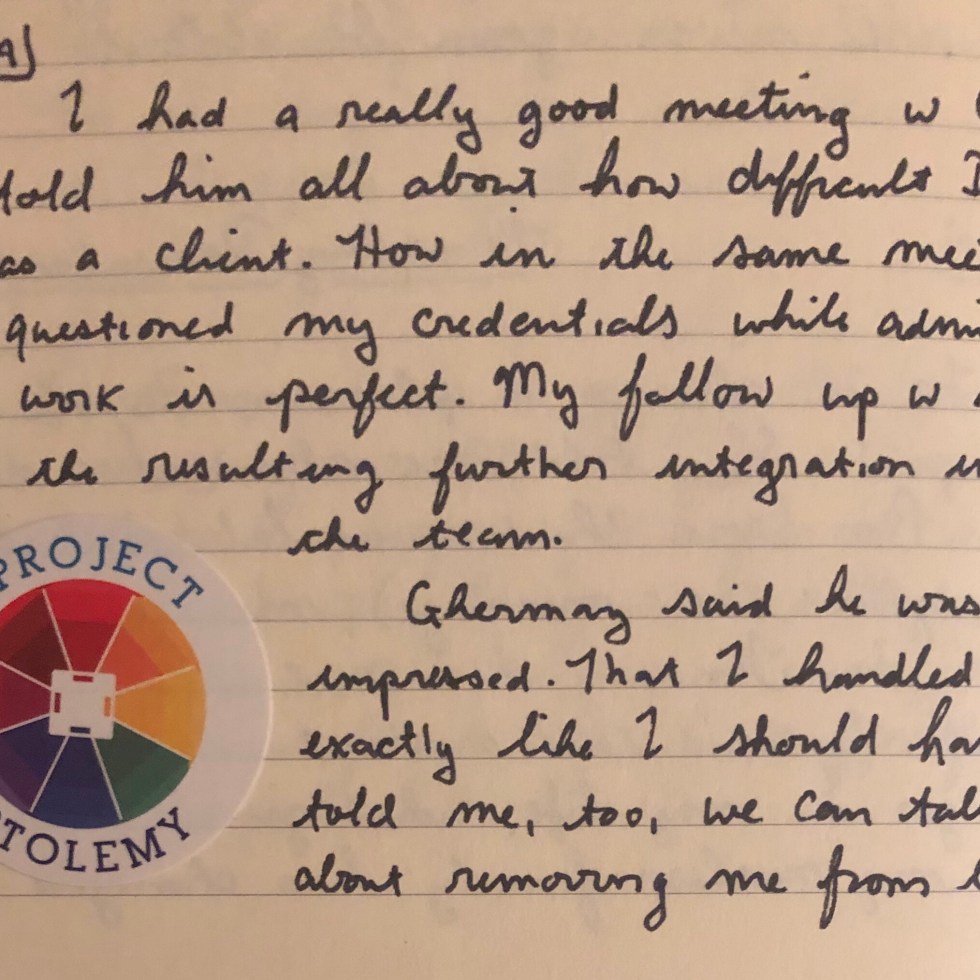 I had a really good meeting w
told him all about how difficult I
as a client. How in the same mee
questioned my credentials while admi
work is perfect. My follow up w
the resulting further integration in
the team.
PROJECT
PTOLEMY
Ghermay said he was
impressed. That I handled
exactly like I should ha
told me, too, we can tal
about removing me from